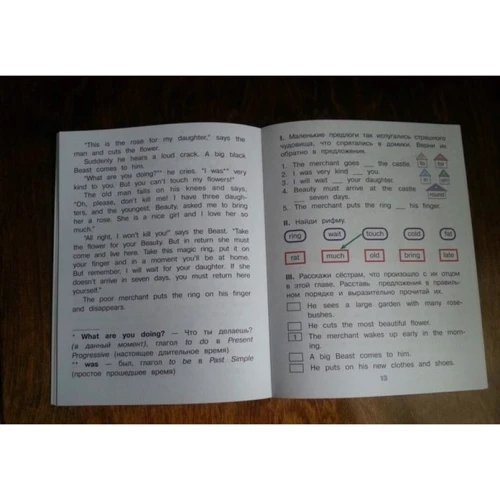 "This is the rose for my daughter," says the
man and cuts the flower.
Suddenly he hears a loud crack. A big black
Beast comes to him.
"What are you doing?* he cries. "I was** very
kind to you. But you can't touch my flowers!"
The old man falls on his knees and says,
"Oh, please, don't kill me! I have three daugh-
ters, and the youngest, Beauty, asked me to bring
her a rose. She is a nice girl and I love her so
much."
"All right, I won't kill you!" says the Beast. "Take
the flower for your Beauty. But in return she must
come and live here. Take this magic ring, put it on
your finger and in a moment you'll be at home.
But remember, I will wait for your daughter. If she
doesn't arrive in seven days, you must return here
yourself."
The poor merchant puts the ring on his finger
and disappears.
* What are you doing? — Что ты делаешь?
(в данный момент), глагол to do в Present
Progressive (настоящее длительное время)
** was — был, глагол to be в Past Simple
(простое прошедшее время)
I. Маленькие предлоги так испугались страшного
чудовища, что спрятались в домики. Верни их
обратно в предложения.
1. The merchant goes ___ the castle.
2. I was very kind ___ you.
3. I will wait ___ your daughter.
4. Beauty must arrive at the castle
___ seven days.
5. The merchant puts the ring ___ his finger.
to for
in
II. Найди рифму.
ring wait touch cold fat
rat much old bring late
III. Расскажи сёстрам, что произошло с их отцом
в этой главе. Расставь предложения в правиль-
ном порядке и выразительно прочитай их.
He sees a large garden with many rose-
bushes.
He cuts the most beautiful flower.
1 The merchant wakes up early in the morn-
ing.
A big Beast comes to him.
He puts on his new clothes and shoes.